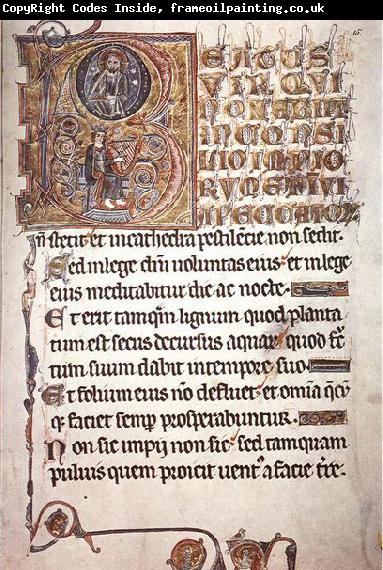 CopyRight Codes Inside, frameoilpainting.co.uk
15.
BEATUS
VIR QUI
NON ABIIT
IN CONSI
LIO IMPIO
RUM ET IN VI
A PECCATOR
nō stetit et in cathedra pestilētie non sedit.
Sed in lege dn̄i uoluntas eius et in lege
eius meditabitur die ac nocte.
Et erit tamq̄m lignum quod planta
tum est secus decursus aquar quod fc̄
tum suum dabit in tempore suo.
Et folium eius nō defluet et om̄ia q̄cū
q; faciet semp prosperabuntur.
Non sic impij non sic sed tamquam
puluis quem proicit uent a facie tr̄e.